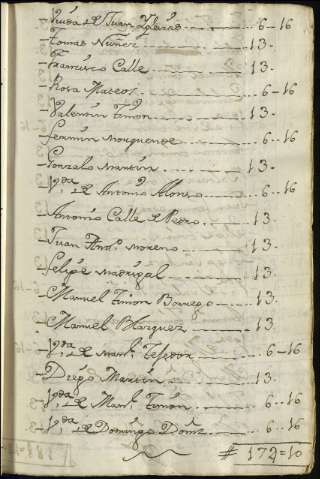 Viuda de Juan Yglesias 6-16
Tomas Nuñez 13.
Francisco Calle 13.
Rosa Mateos 6-16
Valentin Timon 13.
Fermin 6-16
Gonzalo Martin 13.
Vda de Antonio Alonso 6-16
Antonio Calle de Pedro 13.
Juan Anto Moreno 13.
Felipe Madrigal 13.
Manuel Timon Borrego 13.
Manuel Blazquez 13.
Vda de Manl Texedor 6-16
Diego Martin 13.
Vda de Manl Timon 6-16
Vda de Domingo Domz 6-16
# 172=10